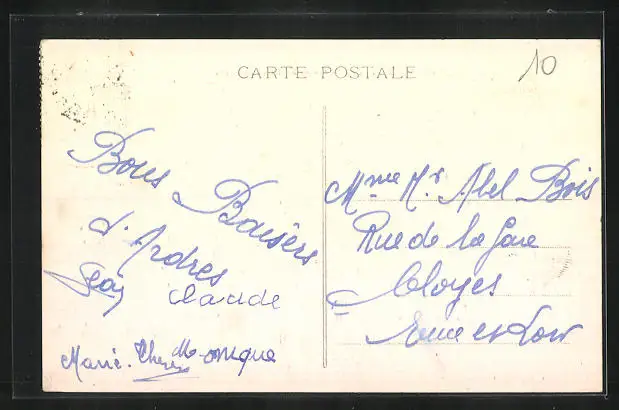 CARTE POSTALE
10
Bons Baisers
d'Ardres
Jean Claude
Marie. Thérèse Monique
Mme Mr Abel Bois
Rue de la Gare
Cloyes
Eure et Loir